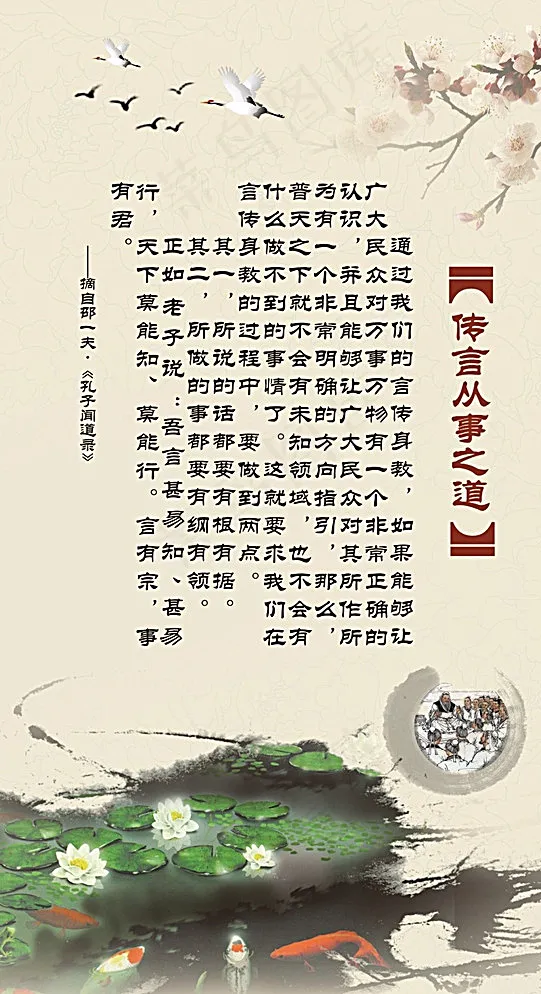 【传言从事之道】
通过我们的言传身教，如果能够让
广大民众对万事万物有一个非常正确的
认识，并且能够让广大民众对其所作所
为有一个非常明确的方向指引，那么，
普天之下就不会有未知领域，也不会有
什么做不到的事情了。这就要求我们在
言传身教的过程中，要做到两点。
其一，所说的话都要有根有据。
其二，所做的事都要有纲有领。
正如老子说：吾言甚易知、甚易
行，天下莫能知、莫能行。言有宗，事
有君。
——摘自邵一夫·《孔子闻道录》